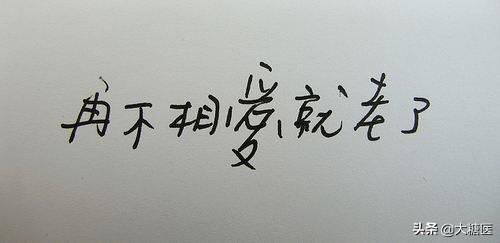 再不相爱就老了
头条 @大糖医